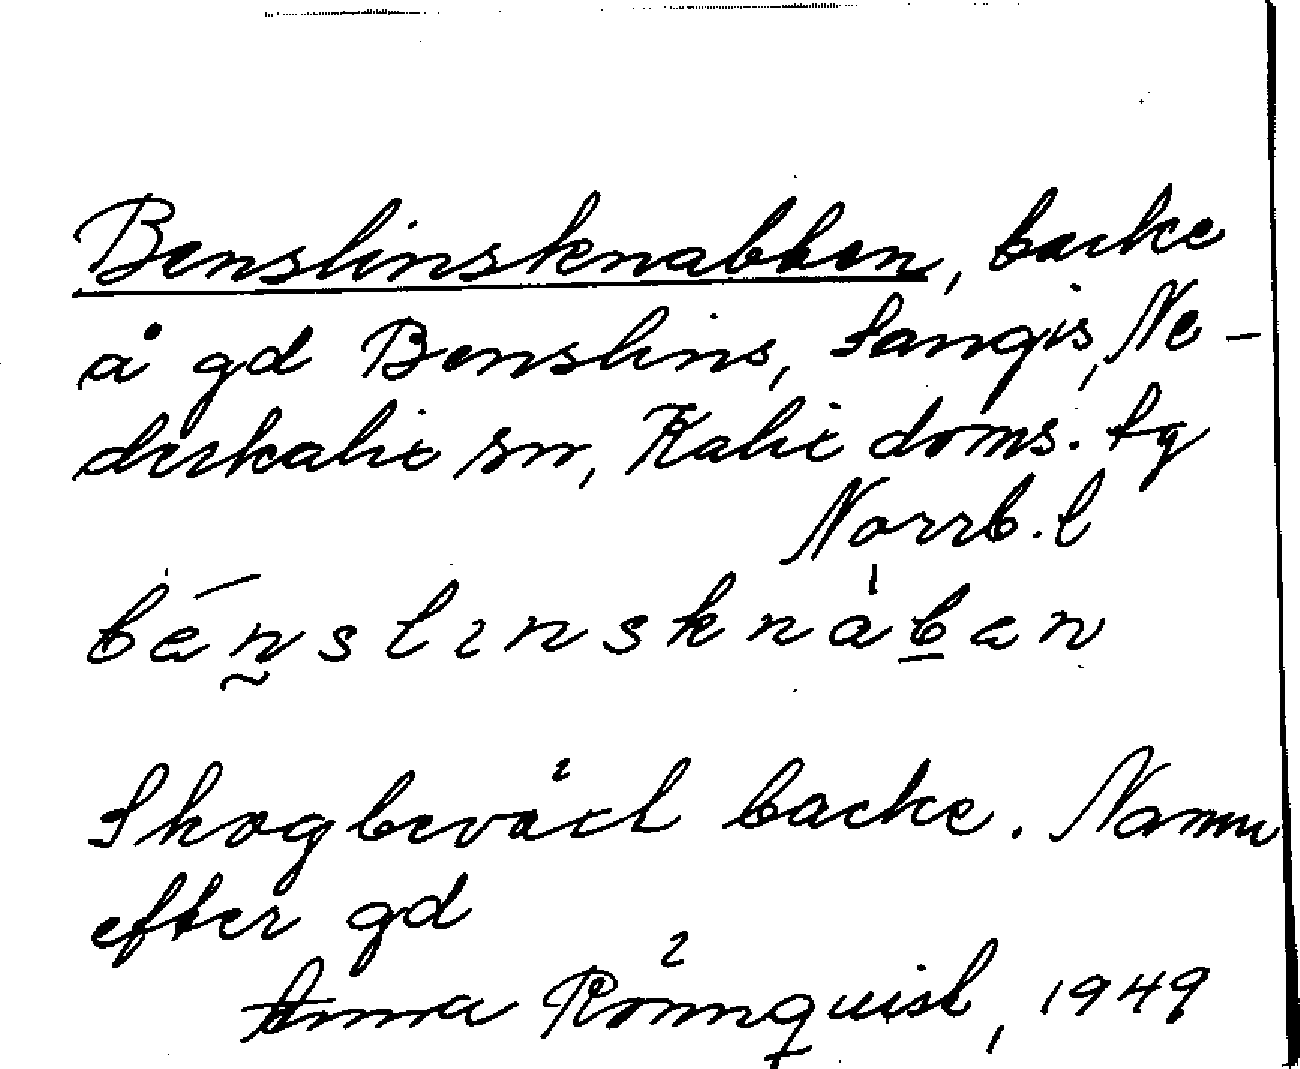 Benslinsknabben, backe
å gd Benslins, Sangis, Ne-
derkalix sn, Kalix doms. tg
Norrb. l
Skogbeväxt backe. Namn
efter gd
Anna Rönnquist, 1949